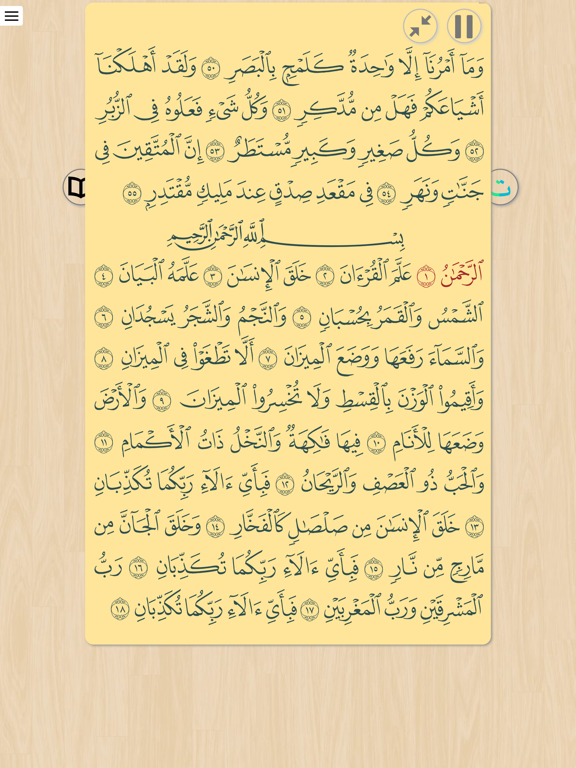 وَمَآ أَمْرُنَآ إِلَّا وَٰحِدَةٌ كَلَمْحٍۭ بِٱلْبَصَرِ ٥٠ وَلَقَدْ أَهْلَكْنَآ
أَشْيَاعَكُمْ فَهَلْ مِن مُّدَّكِرٍ ٥١ وَكُلُّ شَىْءٍ فَعَلُوهُ فِى ٱلزُّبُرِ
٥٢ وَكُلُّ صَغِيرٍ وَكَبِيرٍ مُّسْتَطَرٌ ٥٣ إِنَّ ٱلْمُتَّقِينَ فِى
جَنَّٰتٍ وَنَهَرٍ ٥٤ فِى مَقْعَدِ صِدْقٍ عِندَ مَلِيكٍ مُّقْتَدِرٍۭ ٥٥
بِسْمِ ٱللَّهِ ٱلرَّحْمَٰنِ ٱلرَّحِيمِ
ٱلرَّحْمَٰنُ ١ عَلَّمَ ٱلْقُرْءَانَ ٢ خَلَقَ ٱلْإِنسَٰنَ ٣ عَلَّمَهُ ٱلْبَيَانَ ٤
ٱلشَّمْسُ وَٱلْقَمَرُ بِحُسْبَانٍ ٥ وَٱلنَّجْمُ وَٱلشَّجَرُ يَسْجُدَانِ ٦
وَٱلسَّمَآءَ رَفَعَهَا وَوَضَعَ ٱلْمِيزَانَ ٧ أَلَّا تَطْغَوْا۟ فِى ٱلْمِيزَانِ ٨
وَأَقِيمُوا۟ ٱلْوَزْنَ بِٱلْقِسْطِ وَلَا تُخْسِرُوا۟ ٱلْمِيزَانَ ٩ وَٱلْأَرْضَ
وَضَعَهَا لِلْأَنَامِ ١٠ فِيهَا فَٰكِهَةٌ وَٱلنَّخْلُ ذَاتُ ٱلْأَكْمَامِ ١١
وَٱلْحَبُّ ذُو ٱلْعَصْفِ وَٱلرَّيْحَانُ ١٢ فَبِأَىِّ ءَالَآءِ رَبِّكُمَا تُكَذِّبَانِ
١٣ خَلَقَ ٱلْإِنسَٰنَ مِن صَلْصَٰلٍ كَٱلْفَخَّارِ ١٤ وَخَلَقَ ٱلْجَآنَّ مِن
مَّارِجٍ مِّن نَّارٍ ١٥ فَبِأَىِّ ءَالَآءِ رَبِّكُمَا تُكَذِّبَانِ ١٦ رَبُّ
ٱلْمَشْرِقَيْنِ وَرَبُّ ٱلْمَغْرِبَيْنِ ١٧ فَبِأَىِّ ءَالَآءِ رَبِّكُمَا تُكَذِّبَانِ ١٨
ت